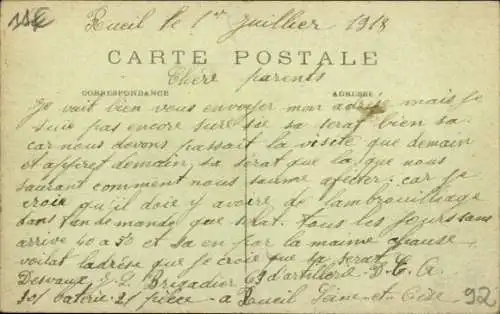 Rueil le 1er Juillier 1918
CARTE POSTALE
Chère parents
CORRESPONDANCE ADRESSE
Je vait bien vous envoyer mon adrise mais je
suie pas encore sure sie sa serat bien sa
car nous devons passait la visite que demain
et appret demain, sa serat que la que nous
saurant comment nous saume afecter. car je
croie qu'il doie y avoire de lambrouillage
dans l'en de mande que serat. Tous les jours sans
arrive 40 a 50 et sa en par la maime
voilat ladrise que je croie que sa serat
Desvaux J. L. Brigadier 63 d'artillerie D. C. A
301 baterie 21 pièce - a Rueil Seine et Oise
92